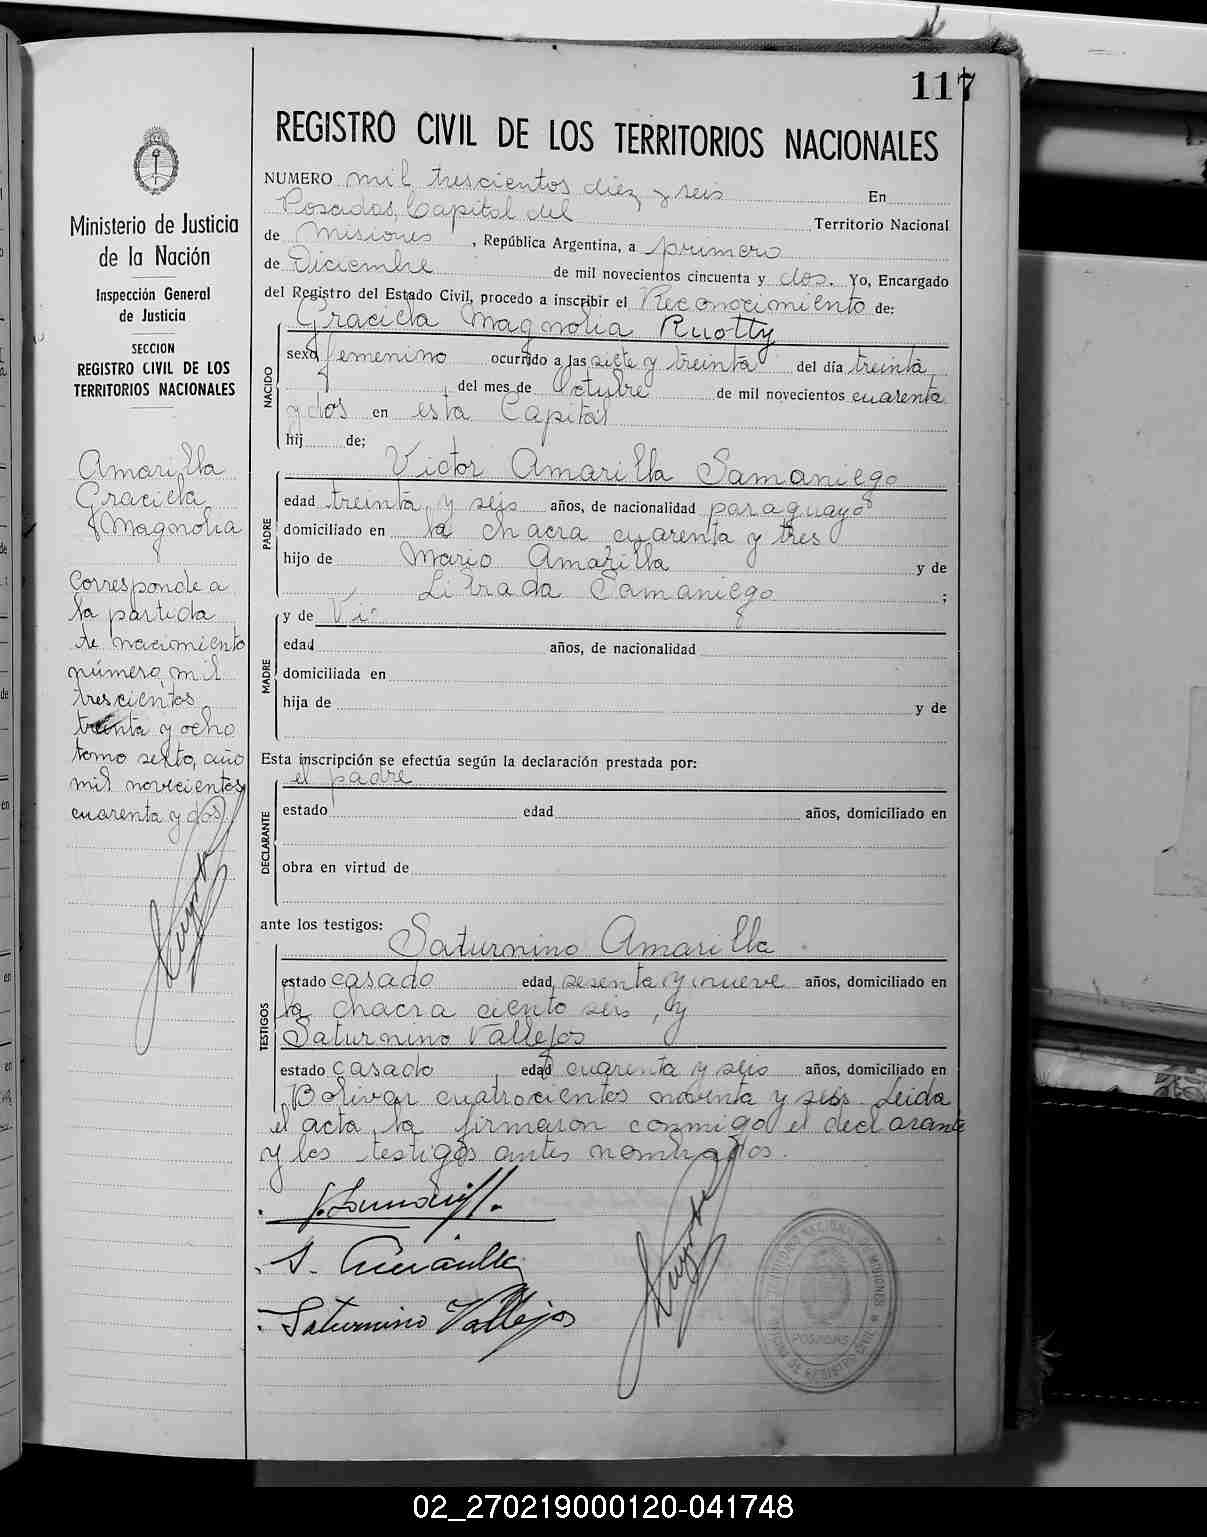 117
REGISTRO CIVIL DE LOS TERRITORIOS NACIONALES
NUMERO mil trescientos diez y seis En
Posadas, Capital del Territorio Nacional
de Misiones, República Argentina, a primero
de Diciembre de mil novecientos cincuenta y dos. Yo, Encargado
del Registro del Estado Civil, procedo a inscribir el Reconocimiento de:
Graciela Magnolia Ruotty
NACIDO
sexo femenino ocurrido a las siete y treinta del día treinta
del mes de Octubre de mil novecientos cuarenta
y dos en esta Capital
hij de:
Victor Amarilla Samaniego
PADRE
edad treinta y seis años, de nacionalidad paraguayo
domiciliado en la chacra cuarenta y tres
hijo de Mario Amarilla y de
Librada Samaniego ;
y de Vic
MADRE
edad años, de nacionalidad
domiciliada en
hija de y de
Esta inscripción se efectúa según la declaración prestada por:
el padre
DECLARANTE
estado edad años, domiciliado en
obra en virtud de
ante los testigos:
Saturnino Amarilla
TESTIGOS
estado casado edad sesenta y nueve años, domiciliado en
la chacra ciento seis, y
Saturnino Vallejos
estado casado edad cuarenta y seis años, domiciliado en
Bolivar cuatrocientos noventa y seis. Leida
el acta, la firmaron conmigo el declarante
y los testigos antes nombrados.
S. Amarilla
Saturnino Vallejos
POSADAS
Ministerio de Justicia
de la Nación
Inspección General
de Justicia
SECCION
REGISTRO CIVIL DE LOS
TERRITORIOS NACIONALES
Amarilla
Graciela
Magnolia
Corresponde a
la partida
de nacimiento
número, mil
trescientos
treinta y ocho
tomo sexto, año
mil novecientos
cuarenta y dos.
02_270219000120-041748